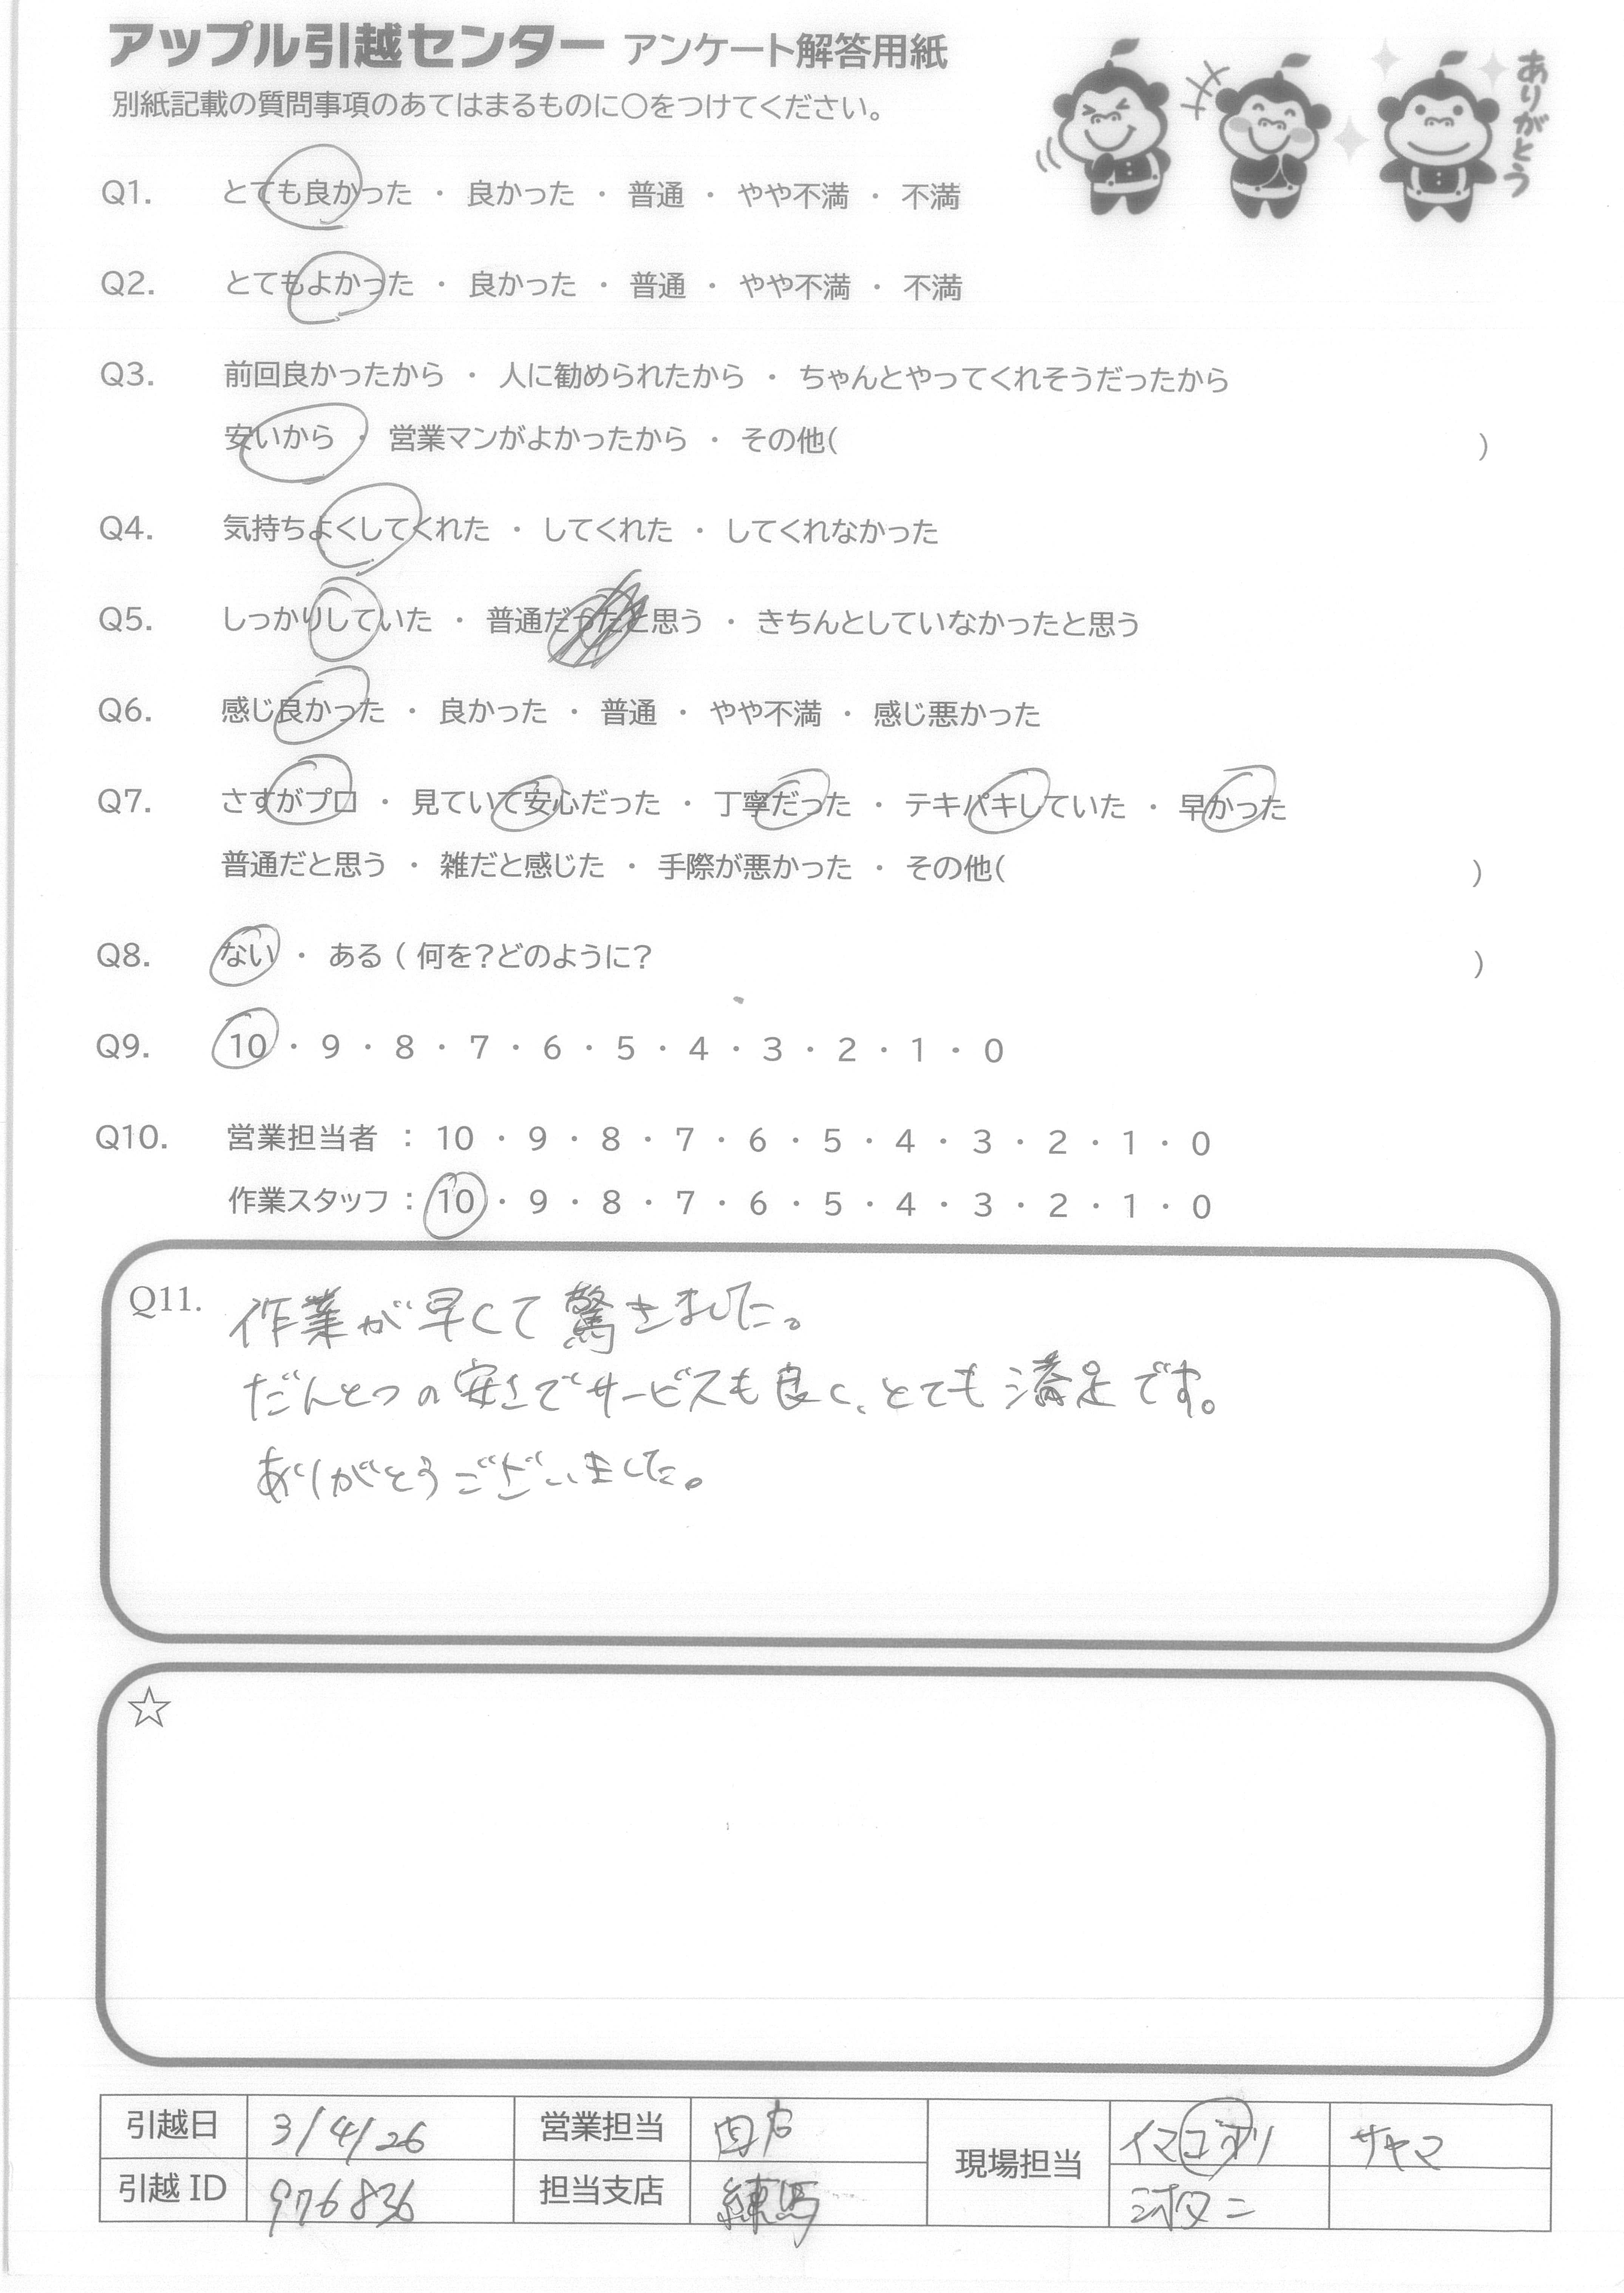 アップル引越センター アンケート解答用紙
ありがとう
別紙記載の質問事項のあてはまるものに○をつけてください。
Q1. とても良かった ・ 良かった ・ 普通 ・ やや不満 ・ 不満
Q2. とてもよかった ・ 良かった ・ 普通 ・ やや不満 ・ 不満
Q3. 前回良かったから ・ 人に勧められたから ・ ちゃんとやってくれそうだったから
安いから ・ 営業マンがよかったから ・ その他( )
Q4. 気持ちよくしてくれた ・ してくれた ・ してくれなかった
Q5. しっかりしていた ・ 普通だったと思う ・ きちんとしていなかったと思う
Q6. 感じ良かった ・ 良かった ・ 普通 ・ やや不満 ・ 感じ悪かった
Q7. さすがプロ ・ 見ていて安心だった ・ 丁寧だった ・ テキパキしていた ・ 早かった
普通だと思う ・ 雑だと感じた ・ 手際が悪かった ・ その他( )
Q8. ない ・ ある ( 何を?どのように? )
Q9. 10 ・ 9 ・ 8 ・ 7 ・ 6 ・ 5 ・ 4 ・ 3 ・ 2 ・ 1 ・ 0
Q10. 営業担当者 : 10 ・ 9 ・ 8 ・ 7 ・ 6 ・ 5 ・ 4 ・ 3 ・ 2 ・ 1 ・ 0
作業スタッフ : 10 ・ 9 ・ 8 ・ 7 ・ 6 ・ 5 ・ 4 ・ 3 ・ 2 ・ 1 ・ 0
Q11. 作業が早くて驚きました。
だんとつの安さでサービスも良く、とても満足です。
ありがとうございました。
☆
引越日 3/4/26 営業担当 現場担当 サヤマ
引越 ID 976836 担当支店 練馬